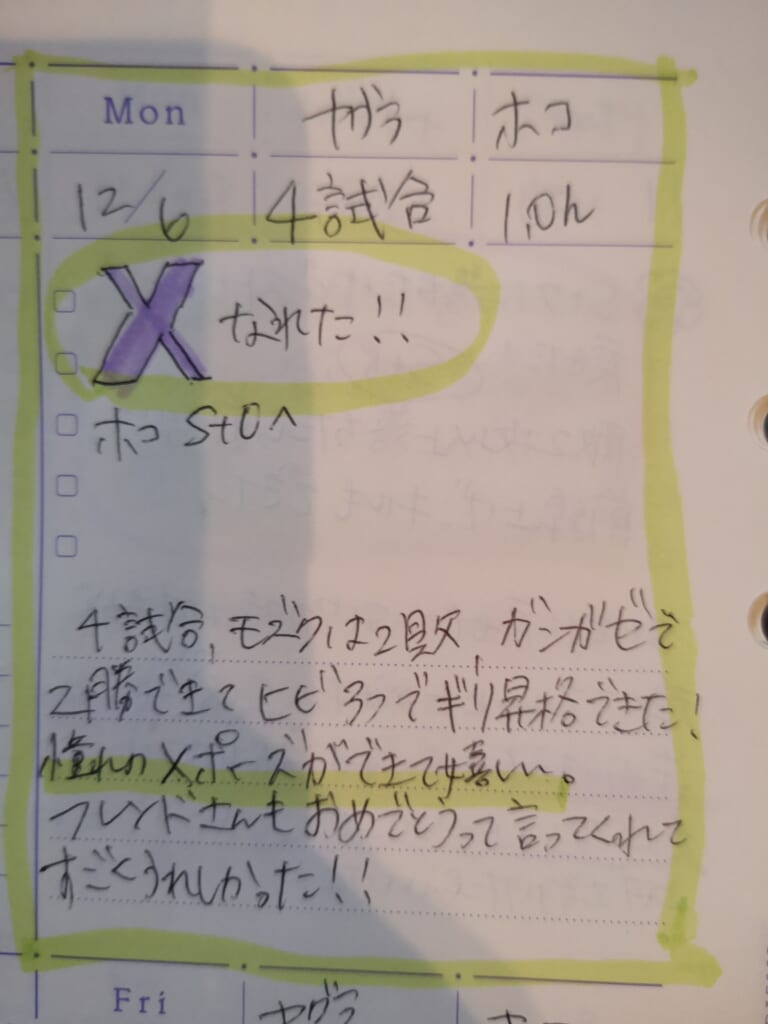 Mon ヤグラ ホコ
12/6 4試合 1.0h
X なれた!!
ホコ S+0へ
4試合, モズクは2敗, ガンガゼで
2勝できて ヒビ3つでギリ昇格できた!
憧れのXポーズができて嬉しい。
フレンドさんもおめでとうって言ってくれて
すごくうれしかった!!
Fri ヤグラ